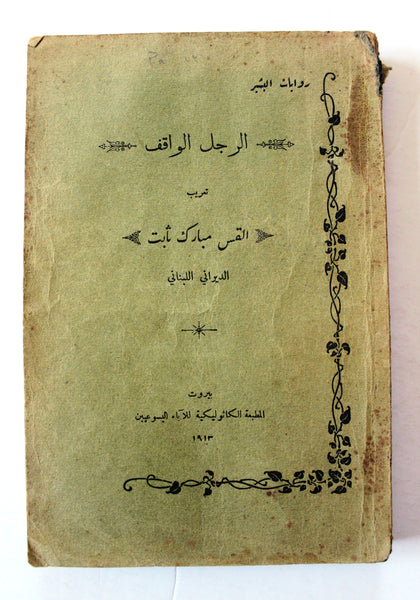 روايات البشير
الرجل الواقف
تعريب
القس مبارك ثابت
الديراني اللبناني
بيروت
المطبعة الكاثوليكية للآباء اليسوعيين
١٩١٣